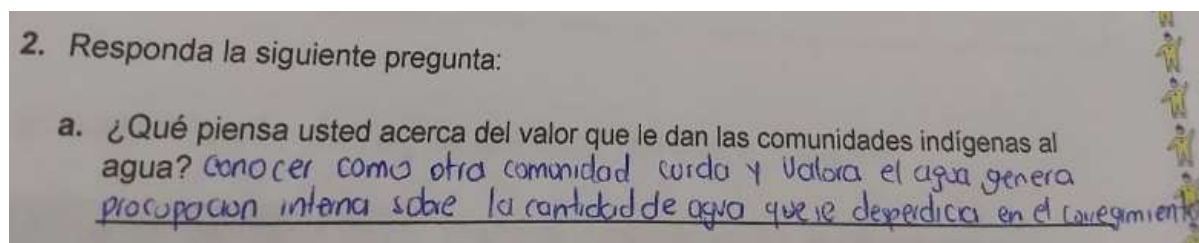 2. Responda la siguiente pregunta:
a. ¿Qué piensa usted acerca del valor que le dan las comunidades indígenas al
agua? Conocer como otra comunidad cuida y valora el agua genera
procupacion interna sobre la cantidad de agua que se desperdicia en el corregimiento